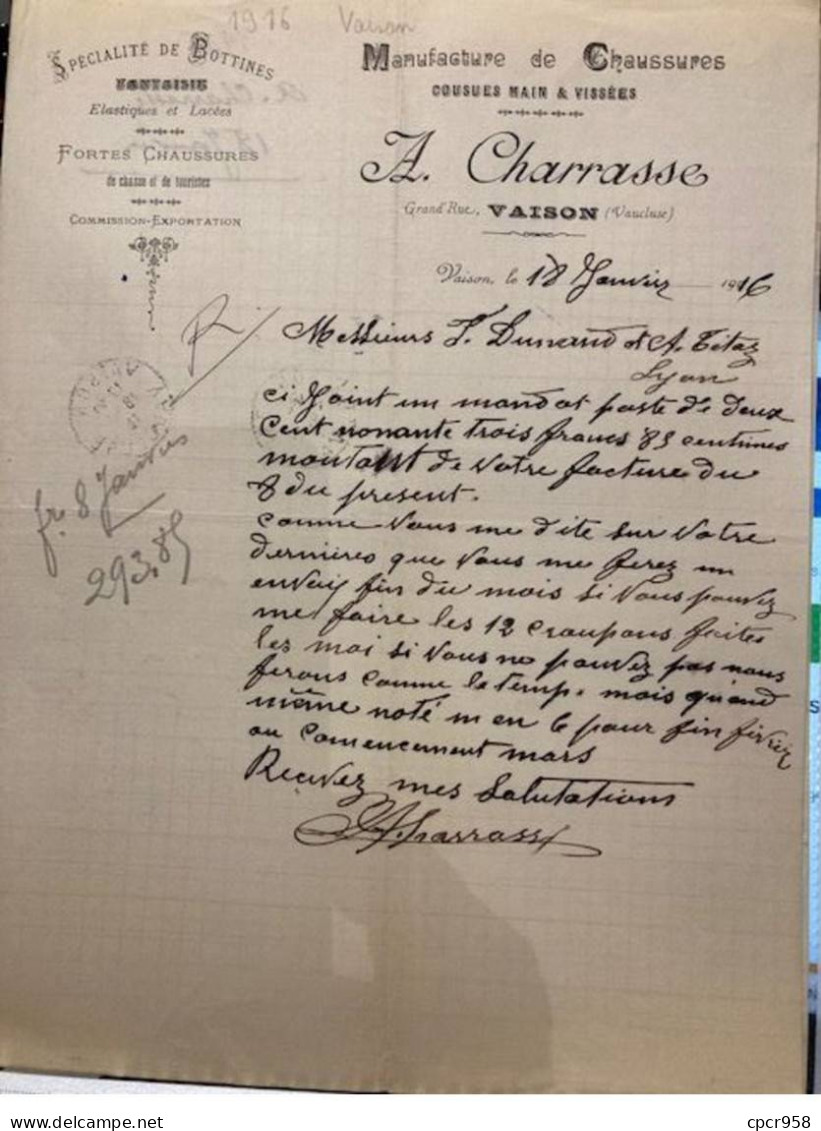 1916 Vaison
SPÉCIALITÉ DE BOTTINES
FANTAISIE
Elastiques et Lacées
FORTES CHAUSSURES
de chasse et de touristes
COMMISSION-EXPORTATION
Manufacture de Chaussures
COUSUES MAIN & VISSÉES
A. Charrasse
Grand'Rue, VAISON (Vaucluse)
Vaison, le 18 Janvier 1916
R.
Messieurs F. Dunand & A. Tétaz
Lyon
ci Joint un mandat poste de deux
Cent nonante trois francs 85 centimes
montant de votre facture du
8 du present.
comme vous me dite sur votre
dernieres que vous me ferez un
envoi fin du mois si vous pouvez
me faire les 12 croupons faites
les moi si vous ne pouvez pas nous
ferons comme le temp. mois quand
même noté m en 6 pour fin fevrier
ou comencement mars
Recevez mes Salutations
A. Charrasse
fre 8 Janvier
293,85
cpcr958